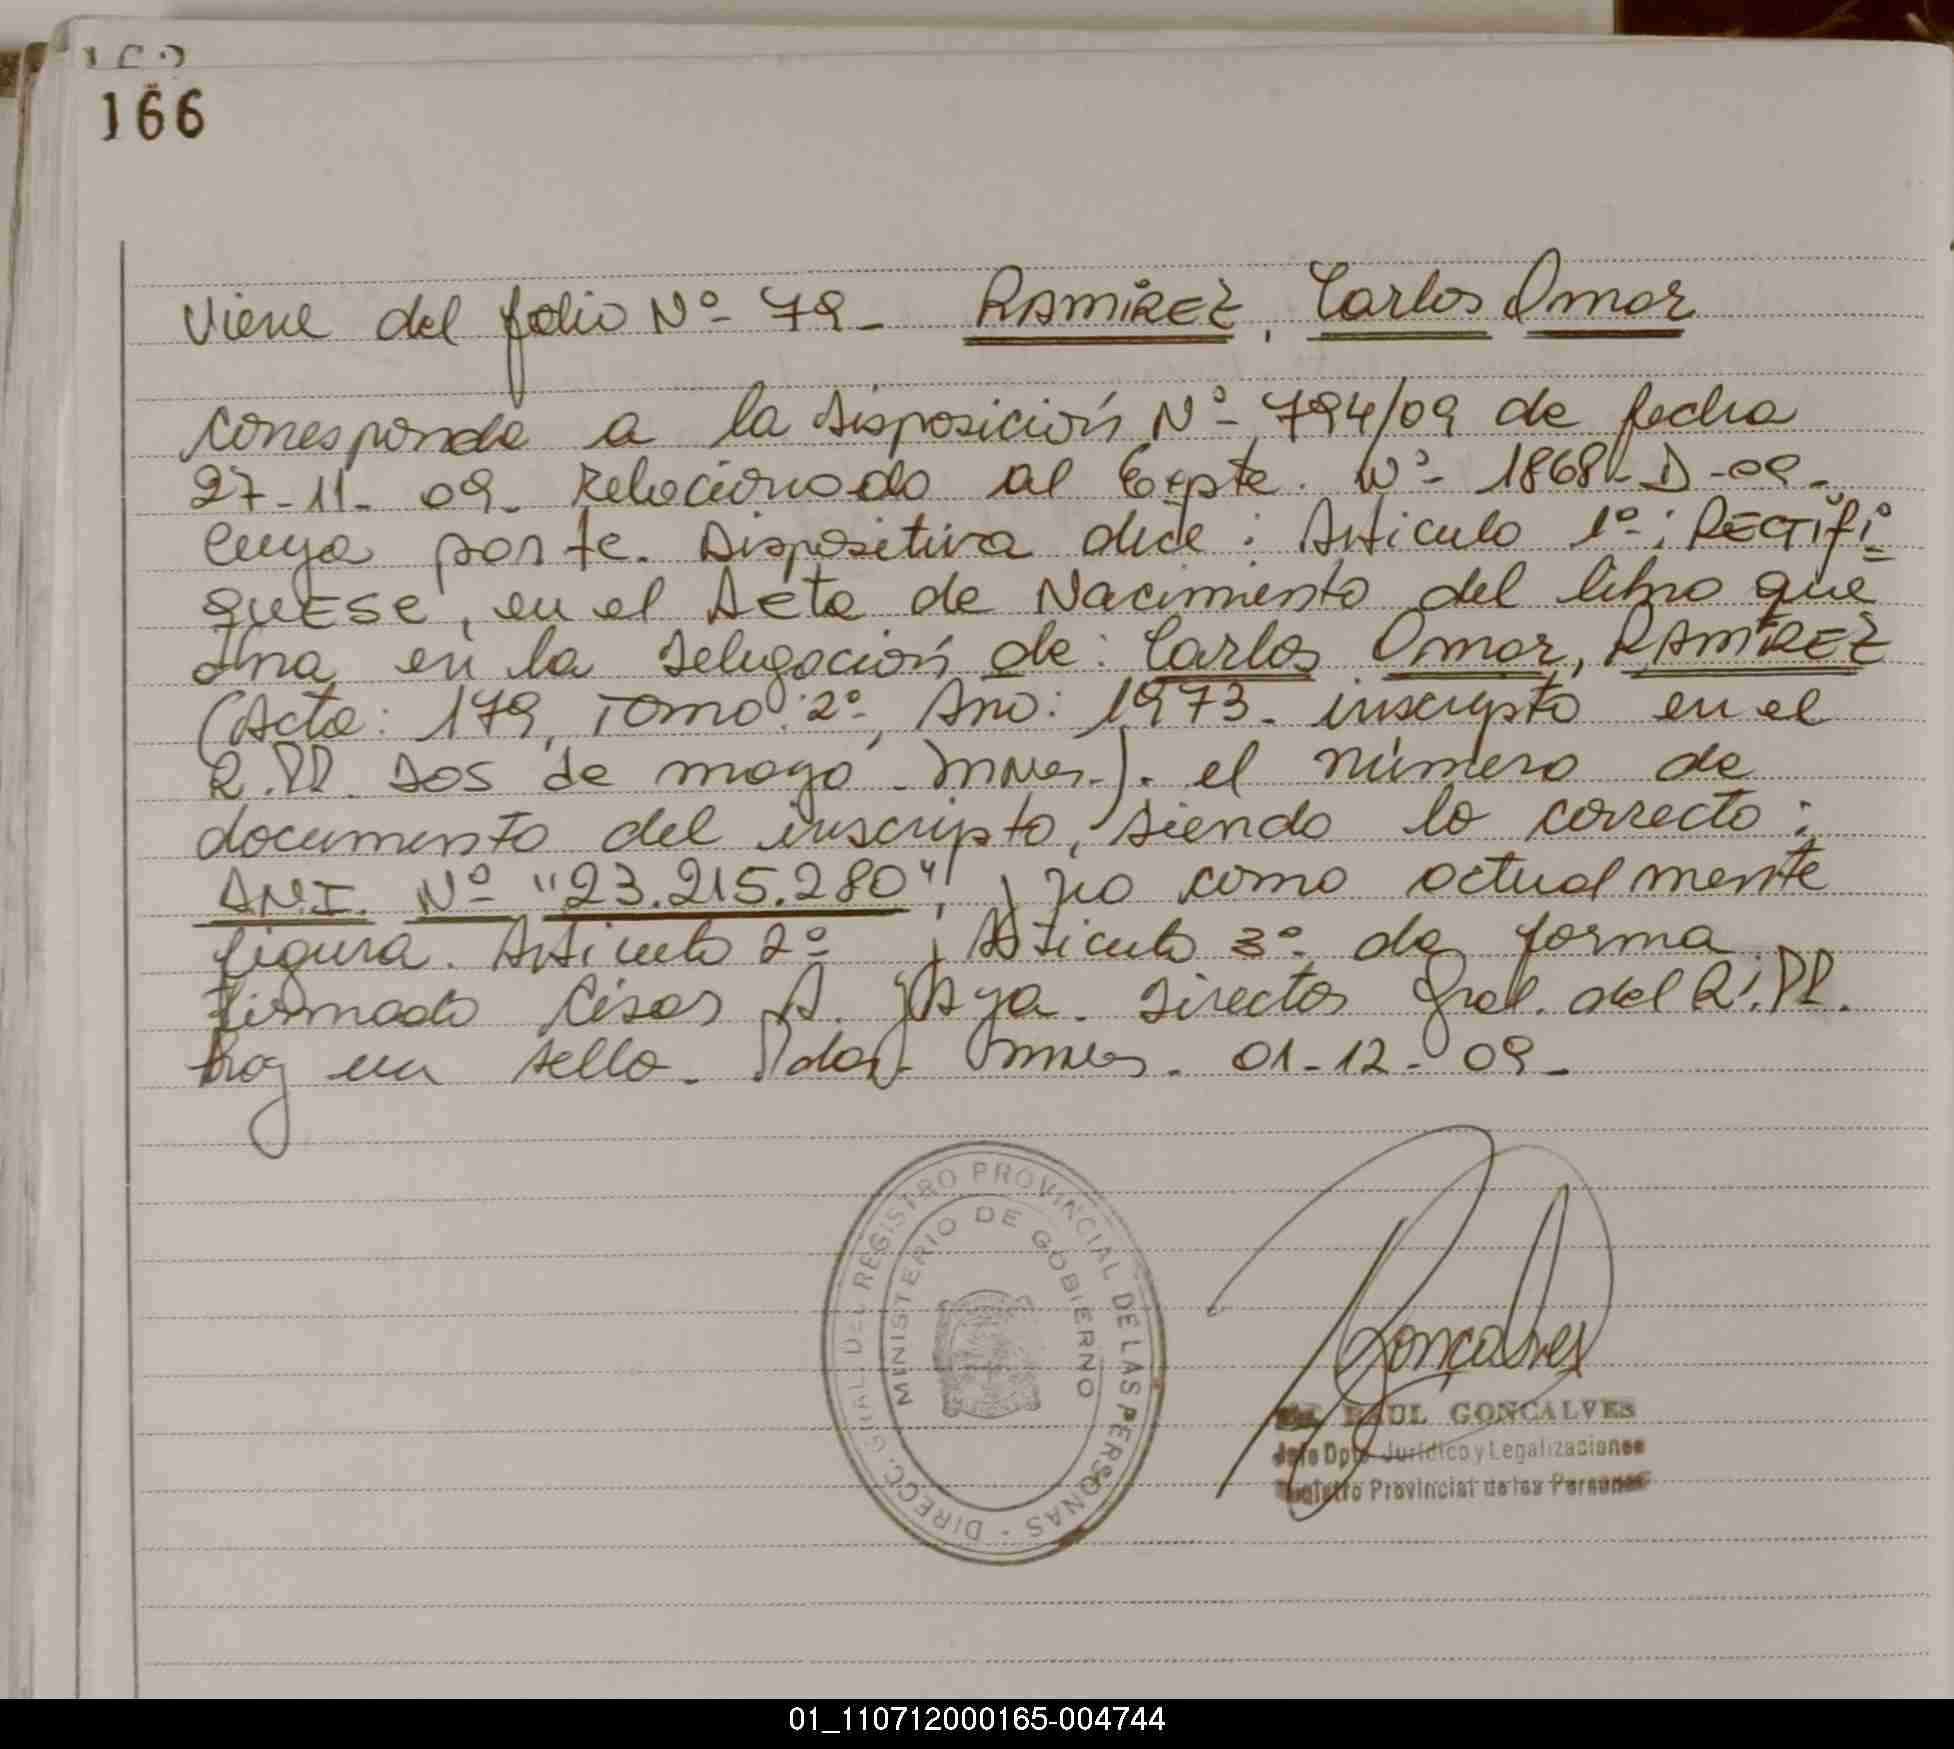 166
Viene del folio Nº 79 - RAMIREZ, Carlos Omar
corresponde a la Disposición Nº 794/09 de fecha
27-11-09- relacionado al Expte. Nº 1868-D-09-
cuya parte. Dispositiva dice: Articulo 1º: RECTIFI=
QUESE, en el Acta de Nacimiento del libro que
obra en la Delegación de: Carlos Omar, RAMIREZ
(Acta: 179, Tomo: 2º, Año: 1973- inscripto en el
R.PP. Dos de mayo - Mnes.). el número de
documento del inscripto, siendo lo correcto:
D.N.I. Nº "23.215.280", y no como actualmente
figura. Articulo 2º y Articulo 3º de forma
firmado Cesar A. Director Gral. del R.PP.
hay un sello. Pdas. Mnes. 01-12-09-
DIRECC. GRAL. DEL REGISTRO PROVINCIAL DE LAS PERSONAS -
MINISTERIO DE GOBIERNO
Goncalves
RAUL GONCALVES
Jefe Dpto. Jurídico y Legalizaciones
Registro Provincial de las Personas
01_110712000165-004744